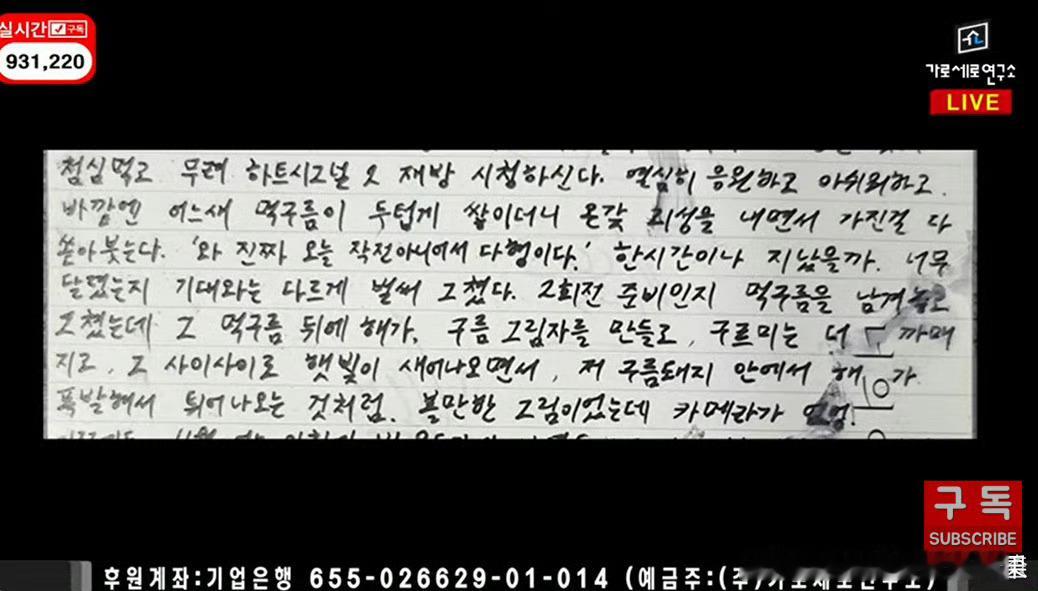 실시간 구독
931,220
가로세로연구소
LIVE
점심먹고 무려 하트시그널 2 재방 시청하신다. 열심히 응원하고 아쉬워하고.
바깥엔 어느새 먹구름이 두텁게 쌓이더니 온갖 괴성을 내면서 가진걸 다
쏟아붓는다. '와 진짜 오늘 작전아니어서 다행이다.' 한시간이나 지났을까. 너무
달렸는지 기대와는 다르게 벌써 그쳤다. 2회전 준비인지 먹구름을 남겨놓고
그쳤는데 그 먹구름 뒤에 해가, 구름 그림자를 만들고, 구르미는 더 까매
지고, 그 사이사이로 햇빛이 새어나오면서, 저 구름돼지 안에서 해가
폭발해서 튀어나오는 것처럼. 볼만한 그림이었는데 카메라가 없엉.
구독
SUBSCRIBE
후원계좌:기업은행 655-026629-01-014 (예금주:(주)가로세로연구소)